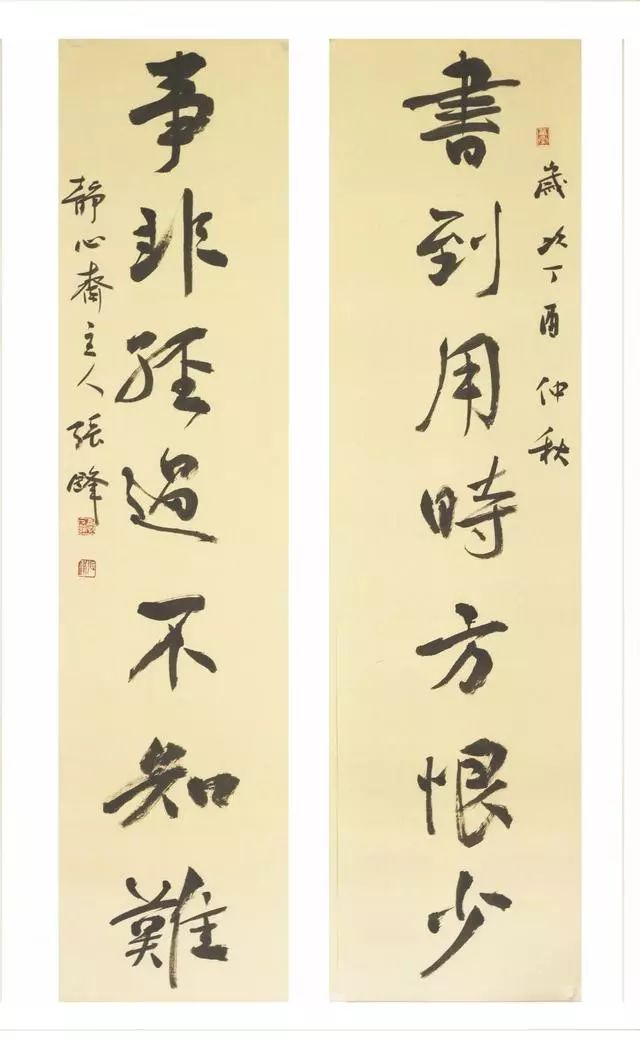 歲次丁酉仲秋
書到用時方恨少
事非經過不知難
靜心齋主人張峰